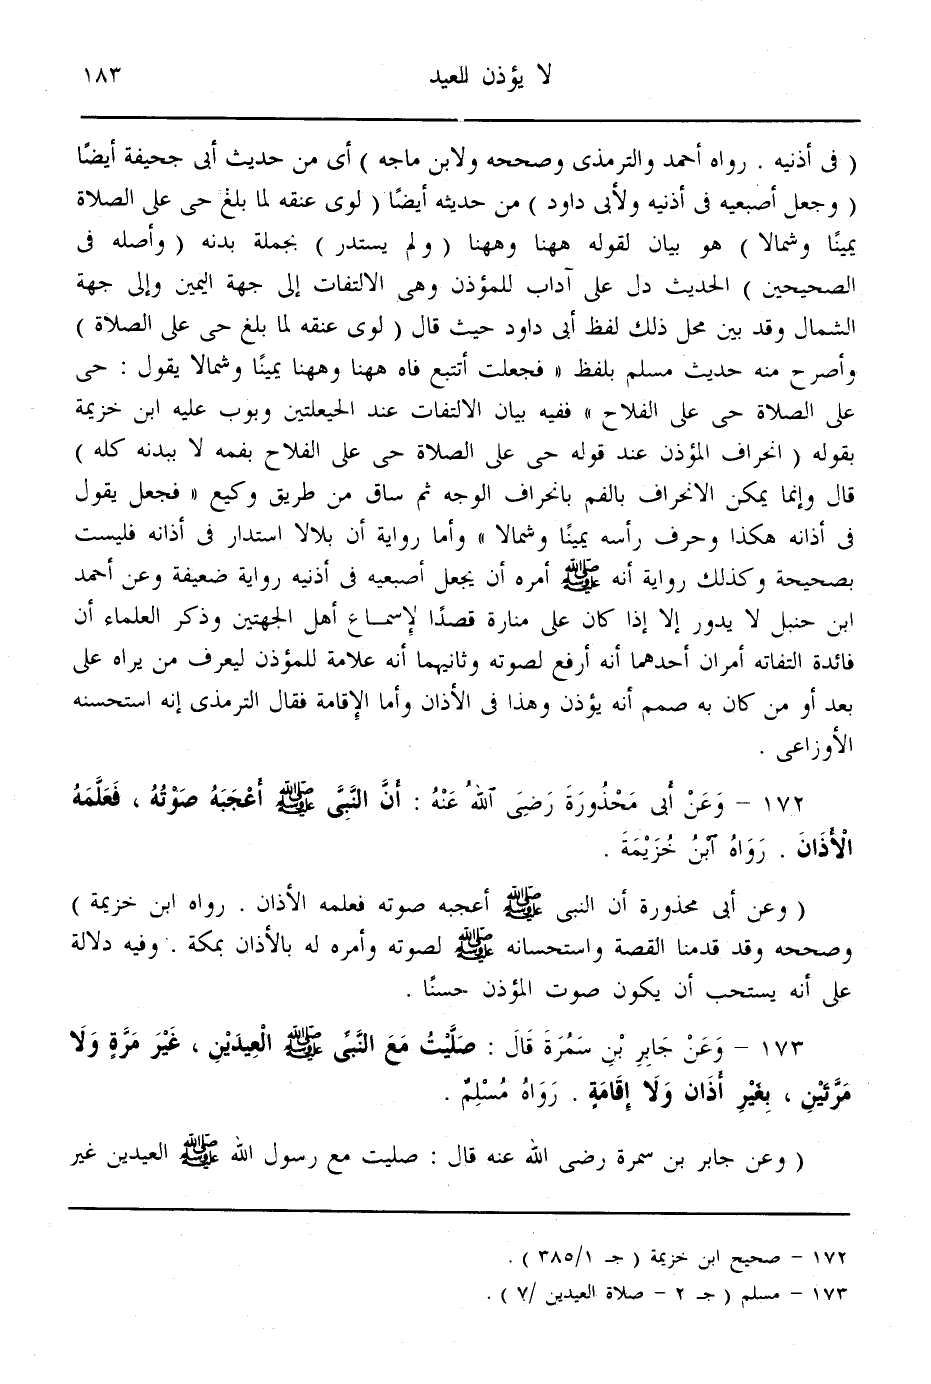 لا يؤذن للعيد ١٨٣
( فى أذنيه . رواه أحمد والترمذى وصححه ولابن ماجه ) أى من حديث أبى جحيفة أيضًا
( وجعل أصبعيه فى أذنيه ولأبى داود ) من حديثه أيضًا ( لوى عنقه لما بلغ حى على الصلاة
يمينًا وشمالا ) هو بيان لقوله ههنا وههنا ( ولم يستدر ) بجملة بدنه ( وأصله فى
الصحيحين ) الحديث دل على آداب للمؤذن وهى الالتفات إلى جهة اليمين وإلى جهة
الشمال وقد بين محل ذلك لفظ أبى داود حيث قال ( لوى عنقه لما بلغ حى على الصلاة )
وأصرح منه حديث مسلم بلفظ « فجعلت أتتبع فاه ههنا وههنا يمينًا وشمالا يقول : حى
على الصلاة حى على الفلاح » ففيه بيان الالتفات عند الحيعلتين وبوب عليه ابن خزيمة
بقوله ( انحراف المؤذن عند قوله حى على الصلاة حى على الفلاح بفمه لا ببدنه كله )
قال وإنما يمكن الانحراف بالفم بانحراف الوجه ثم ساق من طريق وكيع « فجعل يقول
فى أذانه هكذا وحرف رأسه يمينًا وشمالا » وأما رواية أن بلالا استدار فى أذانه فليست
بصحيحة وكذلك رواية أنه ﷺ أمره أن يجعل أصبعيه فى أذنيه رواية ضعيفة وعن أحمد
ابن حنبل لا يدور إلا إذا كان على منارة قصدًا لإسمـاع أهل الجهتين وذكر العلماء أن
فائدة التفاته أمران أحدهما أنه أرفع لصوته وثانيهما أنه علامة للمؤذن ليعرف من يراه على
بعد أو من كان به صمم أنه يؤذن وهذا فى الأذان وأما الإقامة فقال الترمذى إنه استحسنه
الأوزاعى .
١٧٢ – وَعَنْ أَبى مَحْذُورَةَ رَضِىَ ٱللهُ عَنْهُ : أَنَّ النَّبِىَّ ﷺ أَعْجَبَهُ صَوْتُهُ ، فَعَلَّمَهُ
الْأَذَانَ . رَوَاهُ ٱبْنُ خُزَيْمَةَ .
( وعن أبى محذورة أن النبى ﷺ أعجبه صوته فعلمه الأذان . رواه ابن خزيمة )
وصححه وقد قدمنا القصة واستحسانه ﷺ لصوته وأمره له بالأذان بمكة . وفيه دلالة
على أنه يستحب أن يكون صوت المؤذن حسنًا .
١٧٣ – وَعَنْ جَابِرِ بْنِ سَمُرَةَ قَالَ : صَلَّيْتُ مَعَ النَّبِىِّ ﷺ الْعِيدَيْنِ ، غَيْرَ مَرَّةٍ وَلَا
مَرَّتَيْنِ ، بِغَيْرِ أَذَان وَلَا إِقَامَةٍ . رَوَاهُ مُسْلِمٌ .
( وعن جابر بن سمرة رضى الله عنه قال : صليت مع رسول الله ﷺ العيدين غير
١٧٢ – صحيح ابن خزيمة ( جـ ١/ ٣٨٥ ) .
١٧٣ – مسلم ( جـ ٢ – صلاة العيدين /٧ ) .